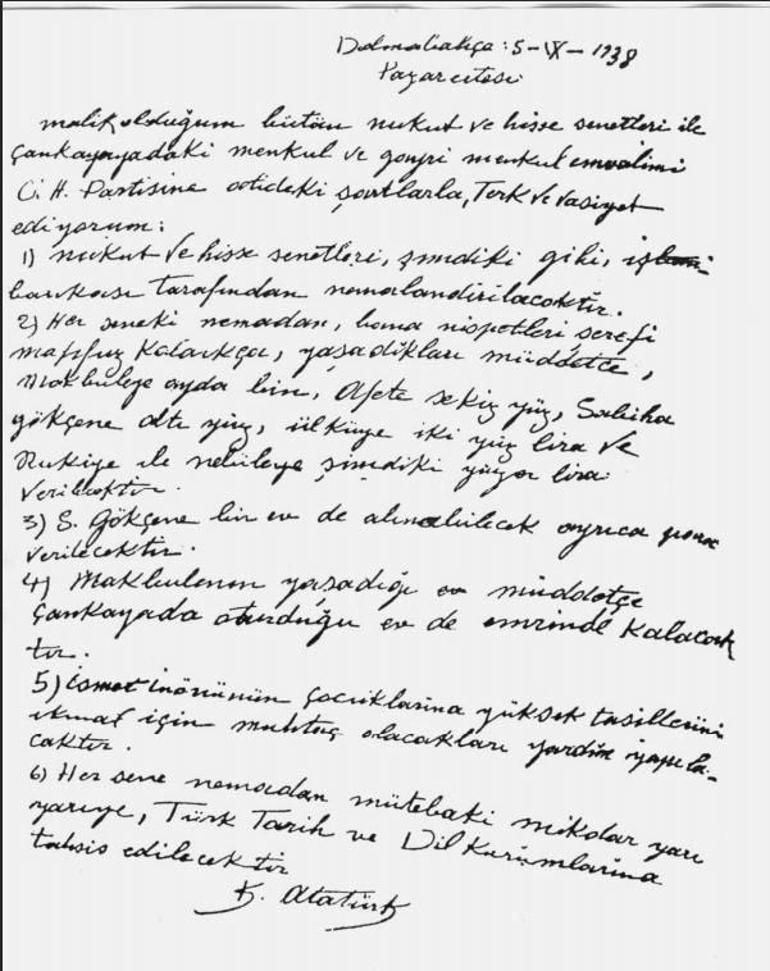 Dolmabahçe: 5-IX-1938
Pazarertesi
malik olduğum bütün nukut ve hisse senetleri ile
Çankayayadaki menkul ve gayri menkul emvalimi
C. H. Partisine atideki şartlarla, Terk ve vasiyet
ediyorum:
1) nukut ve hisse senetleri, şimdiki gibi, iş
bankası tarafından nemalandırılacaktır.
2) Her seneki nemadan, bana nispetleri şerefi
mahfuz kaldıkça, yaşadıkları müddetce,
Makbuleye ayda bin, Afete sekiz yüz, Sabiha
gökçene altı yüz, ülküye iki yüz lira ve
Rukiye ile nebileye şimdiki yüzer lira
verilecektir.
3) S. Gökçene bir ev de alınabilecek ayrıca para
verilecektir.
4) Makbulenin yaşadığı müddetçe
Çankayada oturduğu ev de emrinde kalacak
tır.
5) ismet inönünün çocuklarına yüksek tasillerini
ikmal için muhtaç olacakları yardım yapıla-
caktır.
6) Her sene nemadan mütebaki miktar yarı
yarıye, Türk Tarih ve Dil Kurumlarına
tahsis edilecektir
K. Atatürk